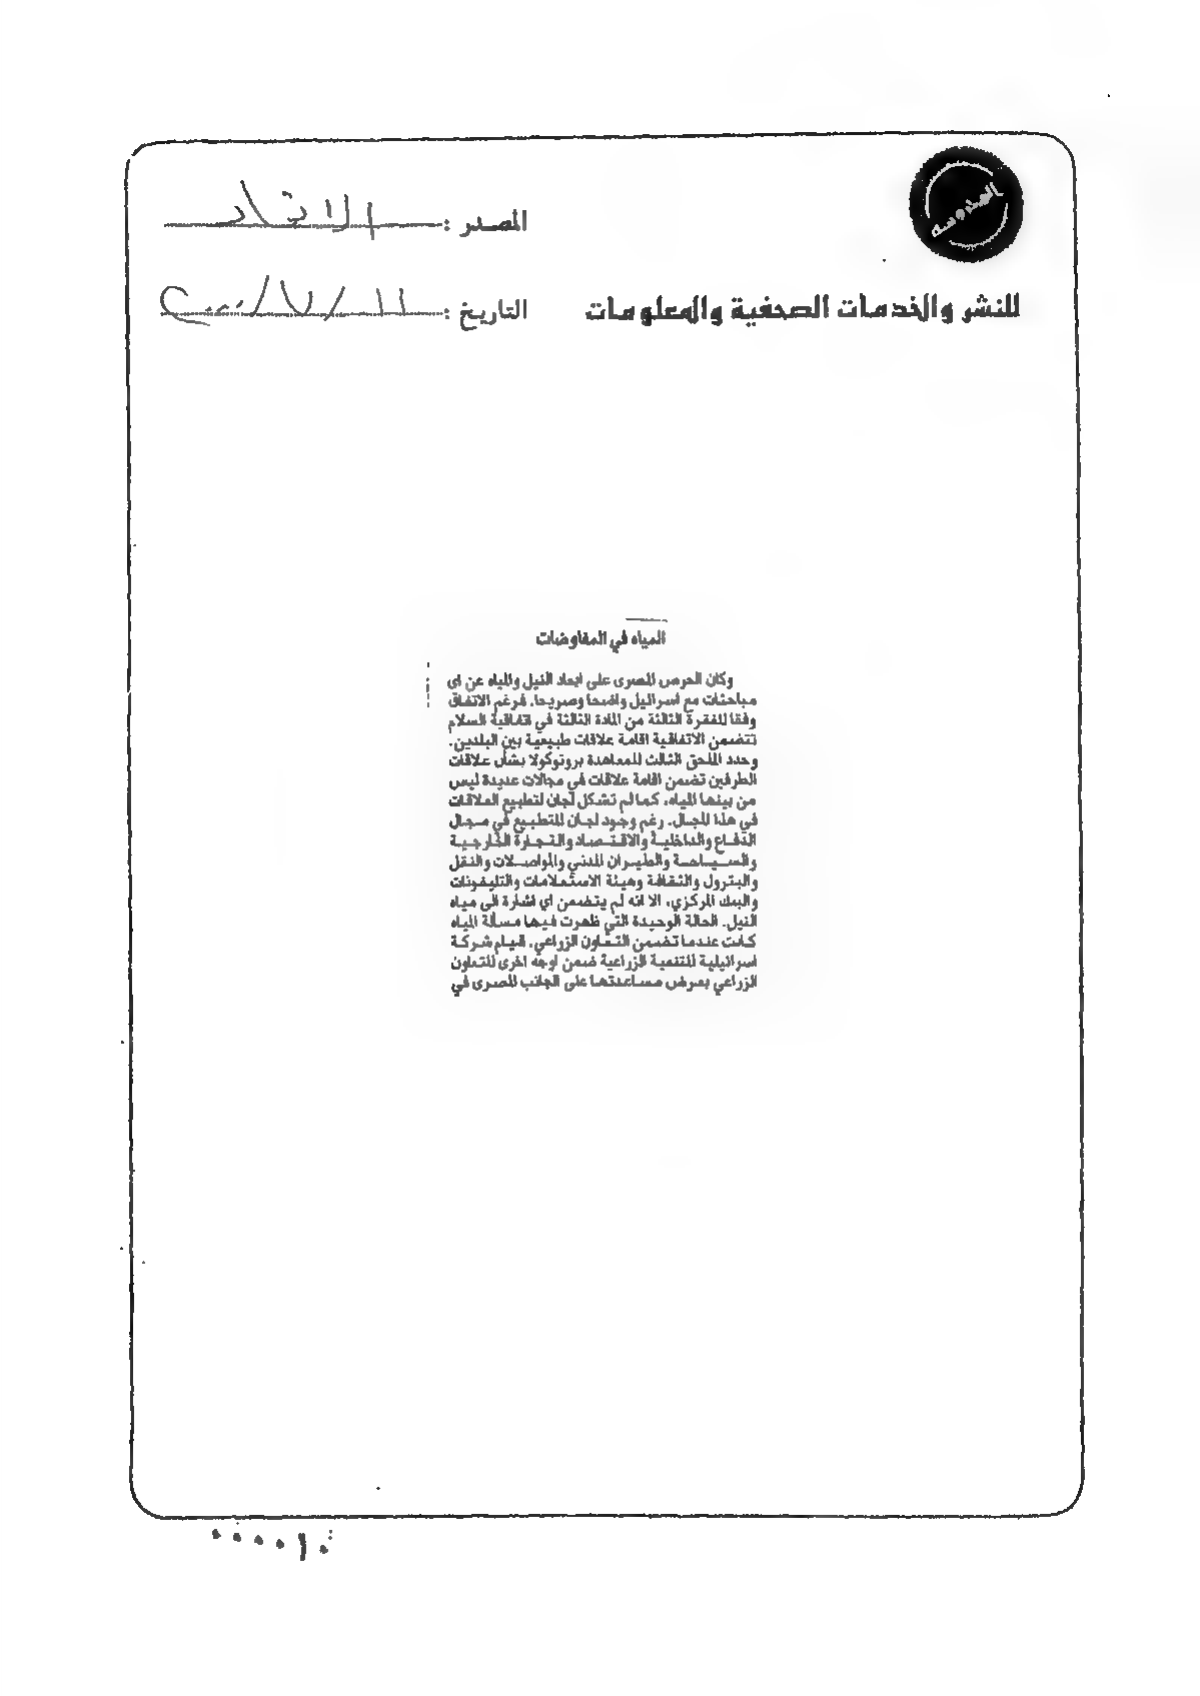 المحروسة
المصدر : الاتحاد
للنشر والخدمات الصحفية والمعلومات
التاريخ : ١١/٧/
المياه في المفاوضات
وكان الحرص المصرى على ابعاد النيل والمياه عن اى
مباحثات مع اسرائيل واضحا وصريحا. فرغم الاتفاق
وفقا للفقرة الثالثة من المادة الثالثة في اتفاقية السلام
تتضمن الاتفاقية اقامة علاقات طبيعية بين البلدين.
وحدد الملحق الثالث للمعاهدة بروتوكولا بشأن علاقات
الطرفين تضمن اقامة علاقات في مجالات عديدة ليس
من بينها المياه، كما لم تشكل لجان لتطبيع العلاقات
في هذا المجال. رغم وجود لجان للتطبيع في مجال
الدفاع والداخلية والاقتصاد والتجارة الخارجية
والسياحة والطيران المدني والمواصلات والنقل
والبترول والثقافة وهيئة الاستعلامات والتليفونات
والبنك المركزي، الا انه لم يتضمن اي اشارة الى مياه
النيل. الحالة الوحيدة التي ظهرت فيها مسألة المياه
كانت عندما تضمن التعاون الزراعي، قيام شركة
اسرائيلية للتنمية الزراعية ضمن اوجه اخرى للتعاون
الزراعي بعرض مساعدتها على الجانب المصرى في